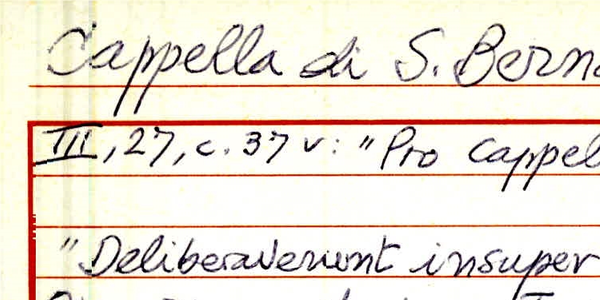 Cappella di S. Bern
III, 27, c. 37 v: "Pro Cappel
"Deliberaverunt insuper